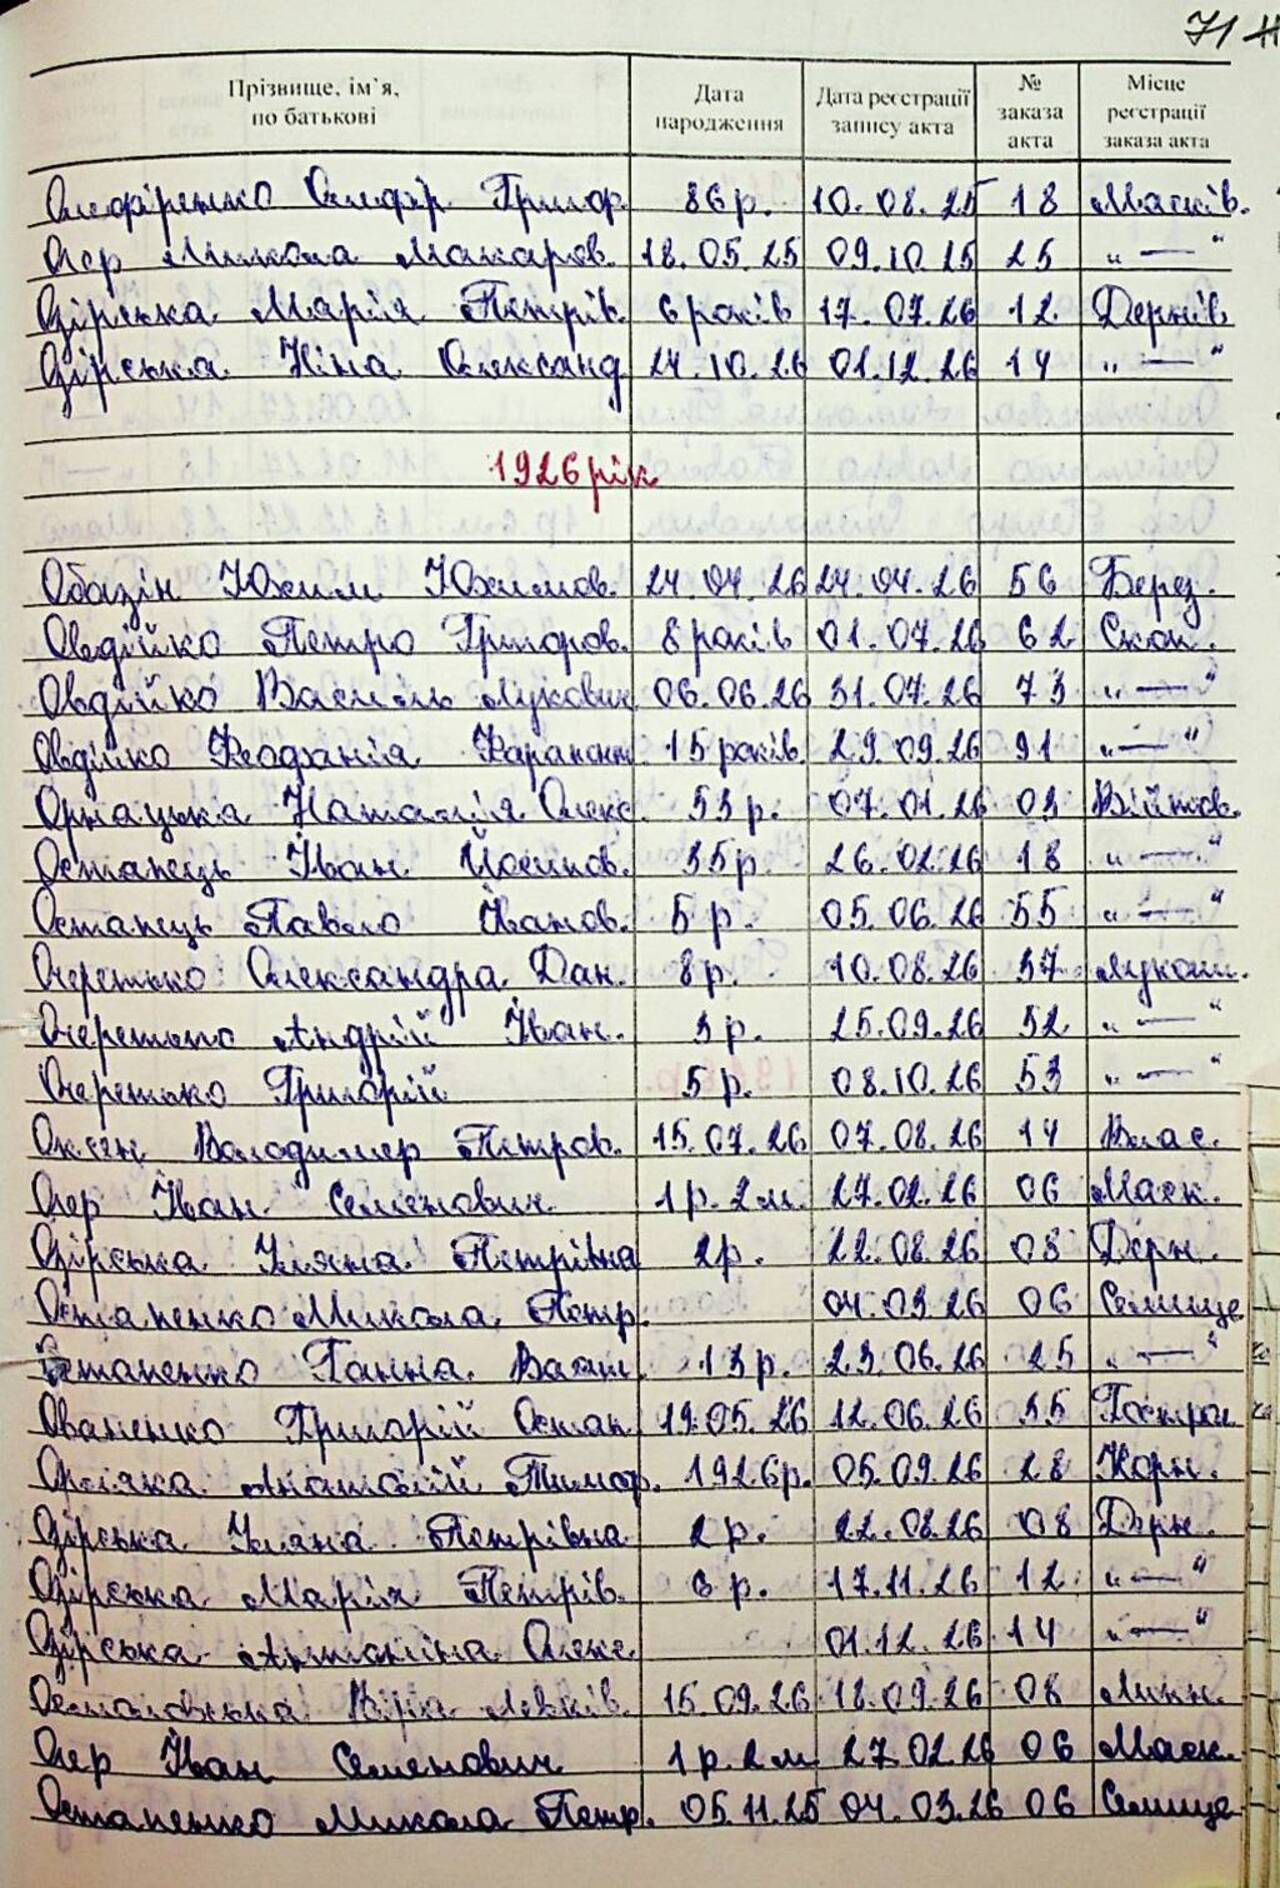 71
Прізвище, ім'я, по батькові Дата народження Дата реєстрації запису акта № заказа акта Місце реєстрації заказа акта
Олефіренко Олефір Григор. 86 р. 10.08.25 18 Масків.
Оер Микола Макаров. 18.05.25 09.10.25 25 „—"
Озірська Марія Петрів. 6 років 17.07.26 12 Дернів
Озірська Ніна Олександ. 24.10.26 01.12.26 14 „—"
1926 рік
Обазін Юхим Юхимов. 24.04.26 24.04.26 56 Берез.
Овдійко Петро Григоров. 8 років 01.07.26 62 Скоп.
Овдійко Василь Лукович 06.06.26 31.07.26 73 „—"
Овдійко Феофанія 15 років 29.09.26 91 „—"
Орнацька Наталія Олекс. 53 р. 07.01.26 03 Війтов.
Остапець Іван Йосипов. 35 р. 26.02.26 18 „—"
Остапець Павло Іванов. 5 р. 05.06.26 55 „—"
Очеретько Олександра Дан. 8 р. 10.08.26 37 Лукаш.
Очеретько Андрій Іван. 3 р. 25.09.26 52 „—"
Очеретько Григорій 5 р. 08.10.26 53 „—"
Оксен Володимер Петров. 15.07.26 07.08.26 14 Влас.
Оер Іван Семенович 1 р. 2 м. 27.02.26 06 Маск.
Озірська Уляна Петрівна 2 р. 22.08.26 08 Дерн.
Остапенко Микола Петр. 04.03.26 06 Селище
Остапенко Ганна Васил. 13 р. 23.06.26 25 „—"
Ованенко Григорій Остап. 19.05.26 12.06.26 35 Построп.
Анатолій Тимоф. 1926 р. 05.09.26 28 Корн.
Озірська Уляна Петрівна 2 р. 22.08.26 08 Дерн.
Озірська Марія Петрів. 6 р. 17.11.26 12 „—"
Озірська Антоніна Олекс. 01.12.26 14 „—"
Осталовська Віра Левків. 15.09.26 18.09.26 08 Липн.
Оер Іван Семенович 1 р. 2 м. 27.02.26 06 Маск.
Остапенко Микола Петр. 05.11.25 04.03.26 06 Селище